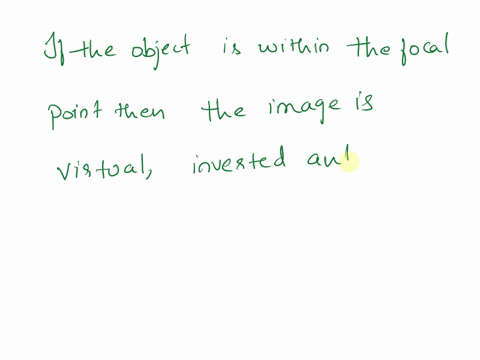 If the object is within the focal
point then the image is
virtual, inverted and